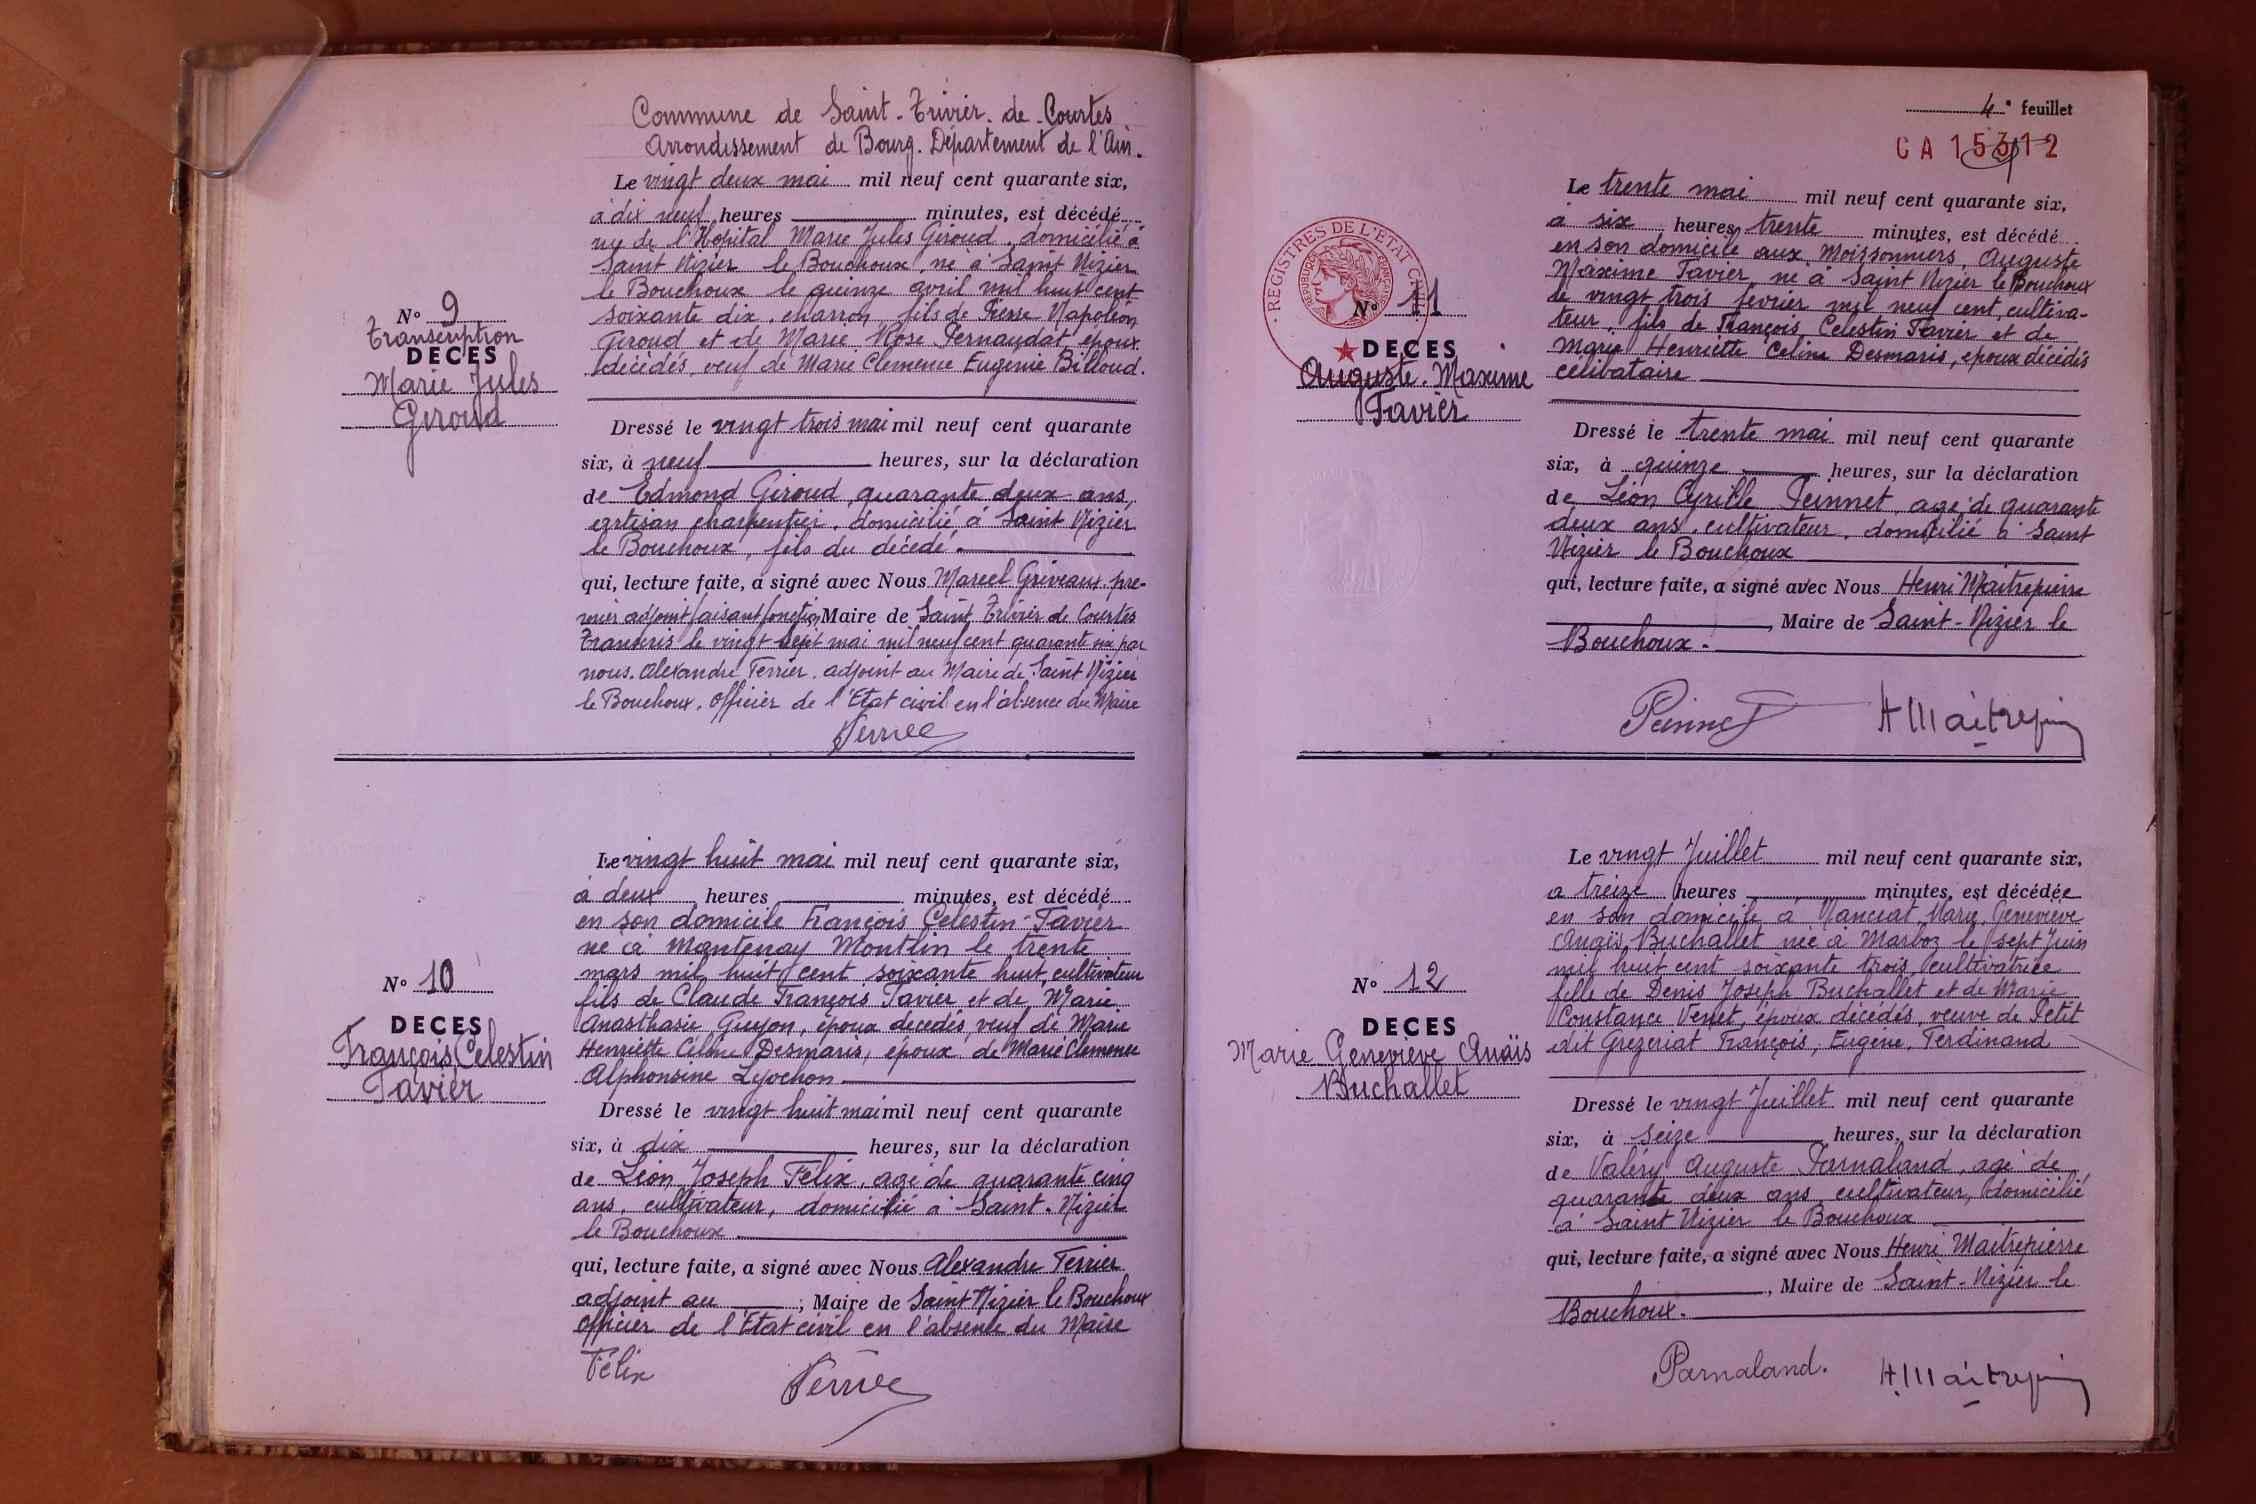 Commune de Saint-Trivier-de-Courtes
Arrondissement de Bourg. Département de l'Ain.
Le vingt deux mai mil neuf cent quarante six,
à dix neuf heures minutes, est décédé
rue de l'Hôpital Marie Jules Giroud, domicilié à
Saint Nizier le Bouchoux, né à Saint Nizier
le Bouchoux le quinze avril mil huit cent
soixante dix, charron, fils de Pierre Napoléon
Giroud et de Marie Rose Pernaudat, époux
décédés, veuf de Marie Clemence Eugenie Billoud.
N° 9
Transcription
DECES
Marie Jules
Giroud
Dressé le vingt trois mai mil neuf cent quarante
six, à neuf heures, sur la déclaration
de Edmond Giroud, quarante deux ans,
artisan charpentier, domicilié à Saint Nizier
le Bouchoux, fils du décédé.
qui, lecture faite, a signé avec Nous Marcel Griveaux, pre-
mier adjoint faisant fonction Maire de Saint Trivier de Courtes
Transcris le vingt sept mai mil neuf cent quarante six par
nous, Alexandre Terrier, adjoint au Maire de Saint Nizier
le Bouchoux, Officier de l'Etat civil en l'absence du Maire
Terrier
Le vingt huit mai mil neuf cent quarante six,
à deux heures minutes, est décédé
en son domicile François Celestin Tavier
né à Mantenay Montlin le trente
mars mil huit cent soixante huit, cultivateur
fils de Claude François Tavier et de Marie
Anasthasie Guyon, époux décédés, veuf de Marie
Henriette Céline Desmaris, époux de Marie Clemence
Alphonsine Lyochon
N° 10
DECES
François Celestin
Tavier
Dressé le vingt huit mai mil neuf cent quarante
six, à dix heures, sur la déclaration
de Léon Joseph Félix, agé de quarante cinq
ans, cultivateur, domicilié à Saint-Nizier
le Bouchoux
qui, lecture faite, a signé avec Nous Alexandre Terrier
adjoint au , Maire de Saint Nizier le Bouchoux
Officier de l'Etat civil en l'absence du Maire
Félix Terrier
4e feuillet
CA 15312
REGISTRES DE L'ETAT CIVIL
REPUBLIQUE FRANCAISE
Le trente mai mil neuf cent quarante six,
à six heures trente minutes, est décédé
en son domicile aux Moissonniers, Auguste
Maxime Tavier, né à Saint Nizier le Bouchoux
le vingt trois fevrier mil neuf cent, cultiva-
teur, fils de François Celestin Tavier et de
Marie Henriette Celine Desmaris, epoux décédés
célibataire
N° 11
DECES
Auguste-Maxime
Tavier
Dressé le trente mai mil neuf cent quarante
six, à quinze heures, sur la déclaration
de Léon Cyrille Peinnet, agé de quarante
deux ans, cultivateur, domicilié à Saint
Nizier le Bouchoux
qui, lecture faite, a signé avec Nous Henri Maitrepierre
, Maire de Saint-Nizier le
Bouchoux.
Peinnet HMaitrepierre
Le vingt Juillet mil neuf cent quarante six,
à treize heures minutes, est décédée
en son domicile à Nanciat, Marie Geneviève
Anaïs Buchallet née à Marboz le sept Juin
mil huit cent soixante trois, cultivatrice
fille de Denis Joseph Buchallet et de Marie
Constance Venet, époux décédés, veuve de Petit
dit Grezeriat François, Eugène, Ferdinand
N° 12
DECES
Marie Geneviève Anaïs
Buchallet
Dressé le vingt Juillet mil neuf cent quarante
six, à seize heures, sur la déclaration
de Valéry Auguste Parnaland, agé de
quarante deux ans, cultivateur, domicilié
à Saint Nizier le Bouchoux
qui, lecture faite, a signé avec Nous Henri Maitrepierre
, Maire de Saint-Nizier le
Bouchoux.
Parnaland. HMaitrepierre